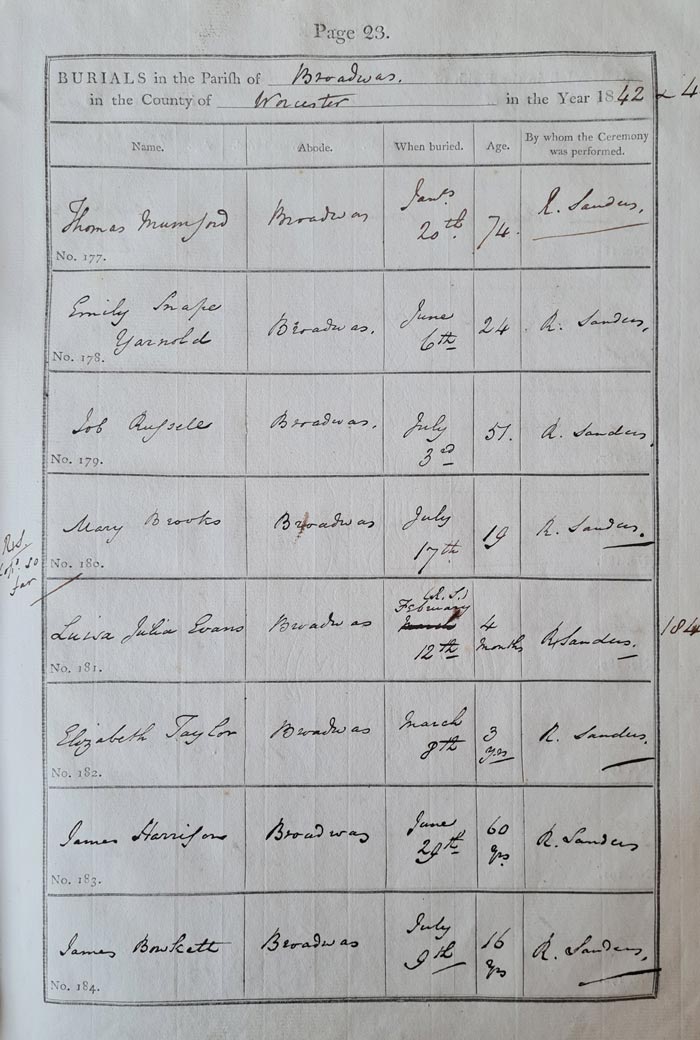 Page 23.
BURIALS in the Parish of Broadwas.
in the County of Worcester in the Year 1842 & 4
Name. Abode. When buried. Age. By whom the Ceremony was performed.
Thomas Mumford Broadwas Jany. 20th. 74. R. Sanders.
No. 177.
Emily Snape
Yarnold Broadwas. June 6th 24. R. Sanders.
No. 178.
Job Russell Broadwas. July 3rd 51. R. Sanders.
No. 179.
Mary Brooks Broadwas July 17th 19 R. Sanders.
No. 180.
R.S.
so
far
Luisa Julia Evans Broadwas (R.S.) February March 12th 4 Months R Sanders. 184
No. 181.
Elizabeth Taylor Broadwas March 8th 3 yrs R. Sanders.
No. 182.
James Harrison Broadwas June 29th 60 yrs R. Sanders
No. 183.
James Bowkett Broadwas July 9th 16 yrs R. Sanders.
No. 184.